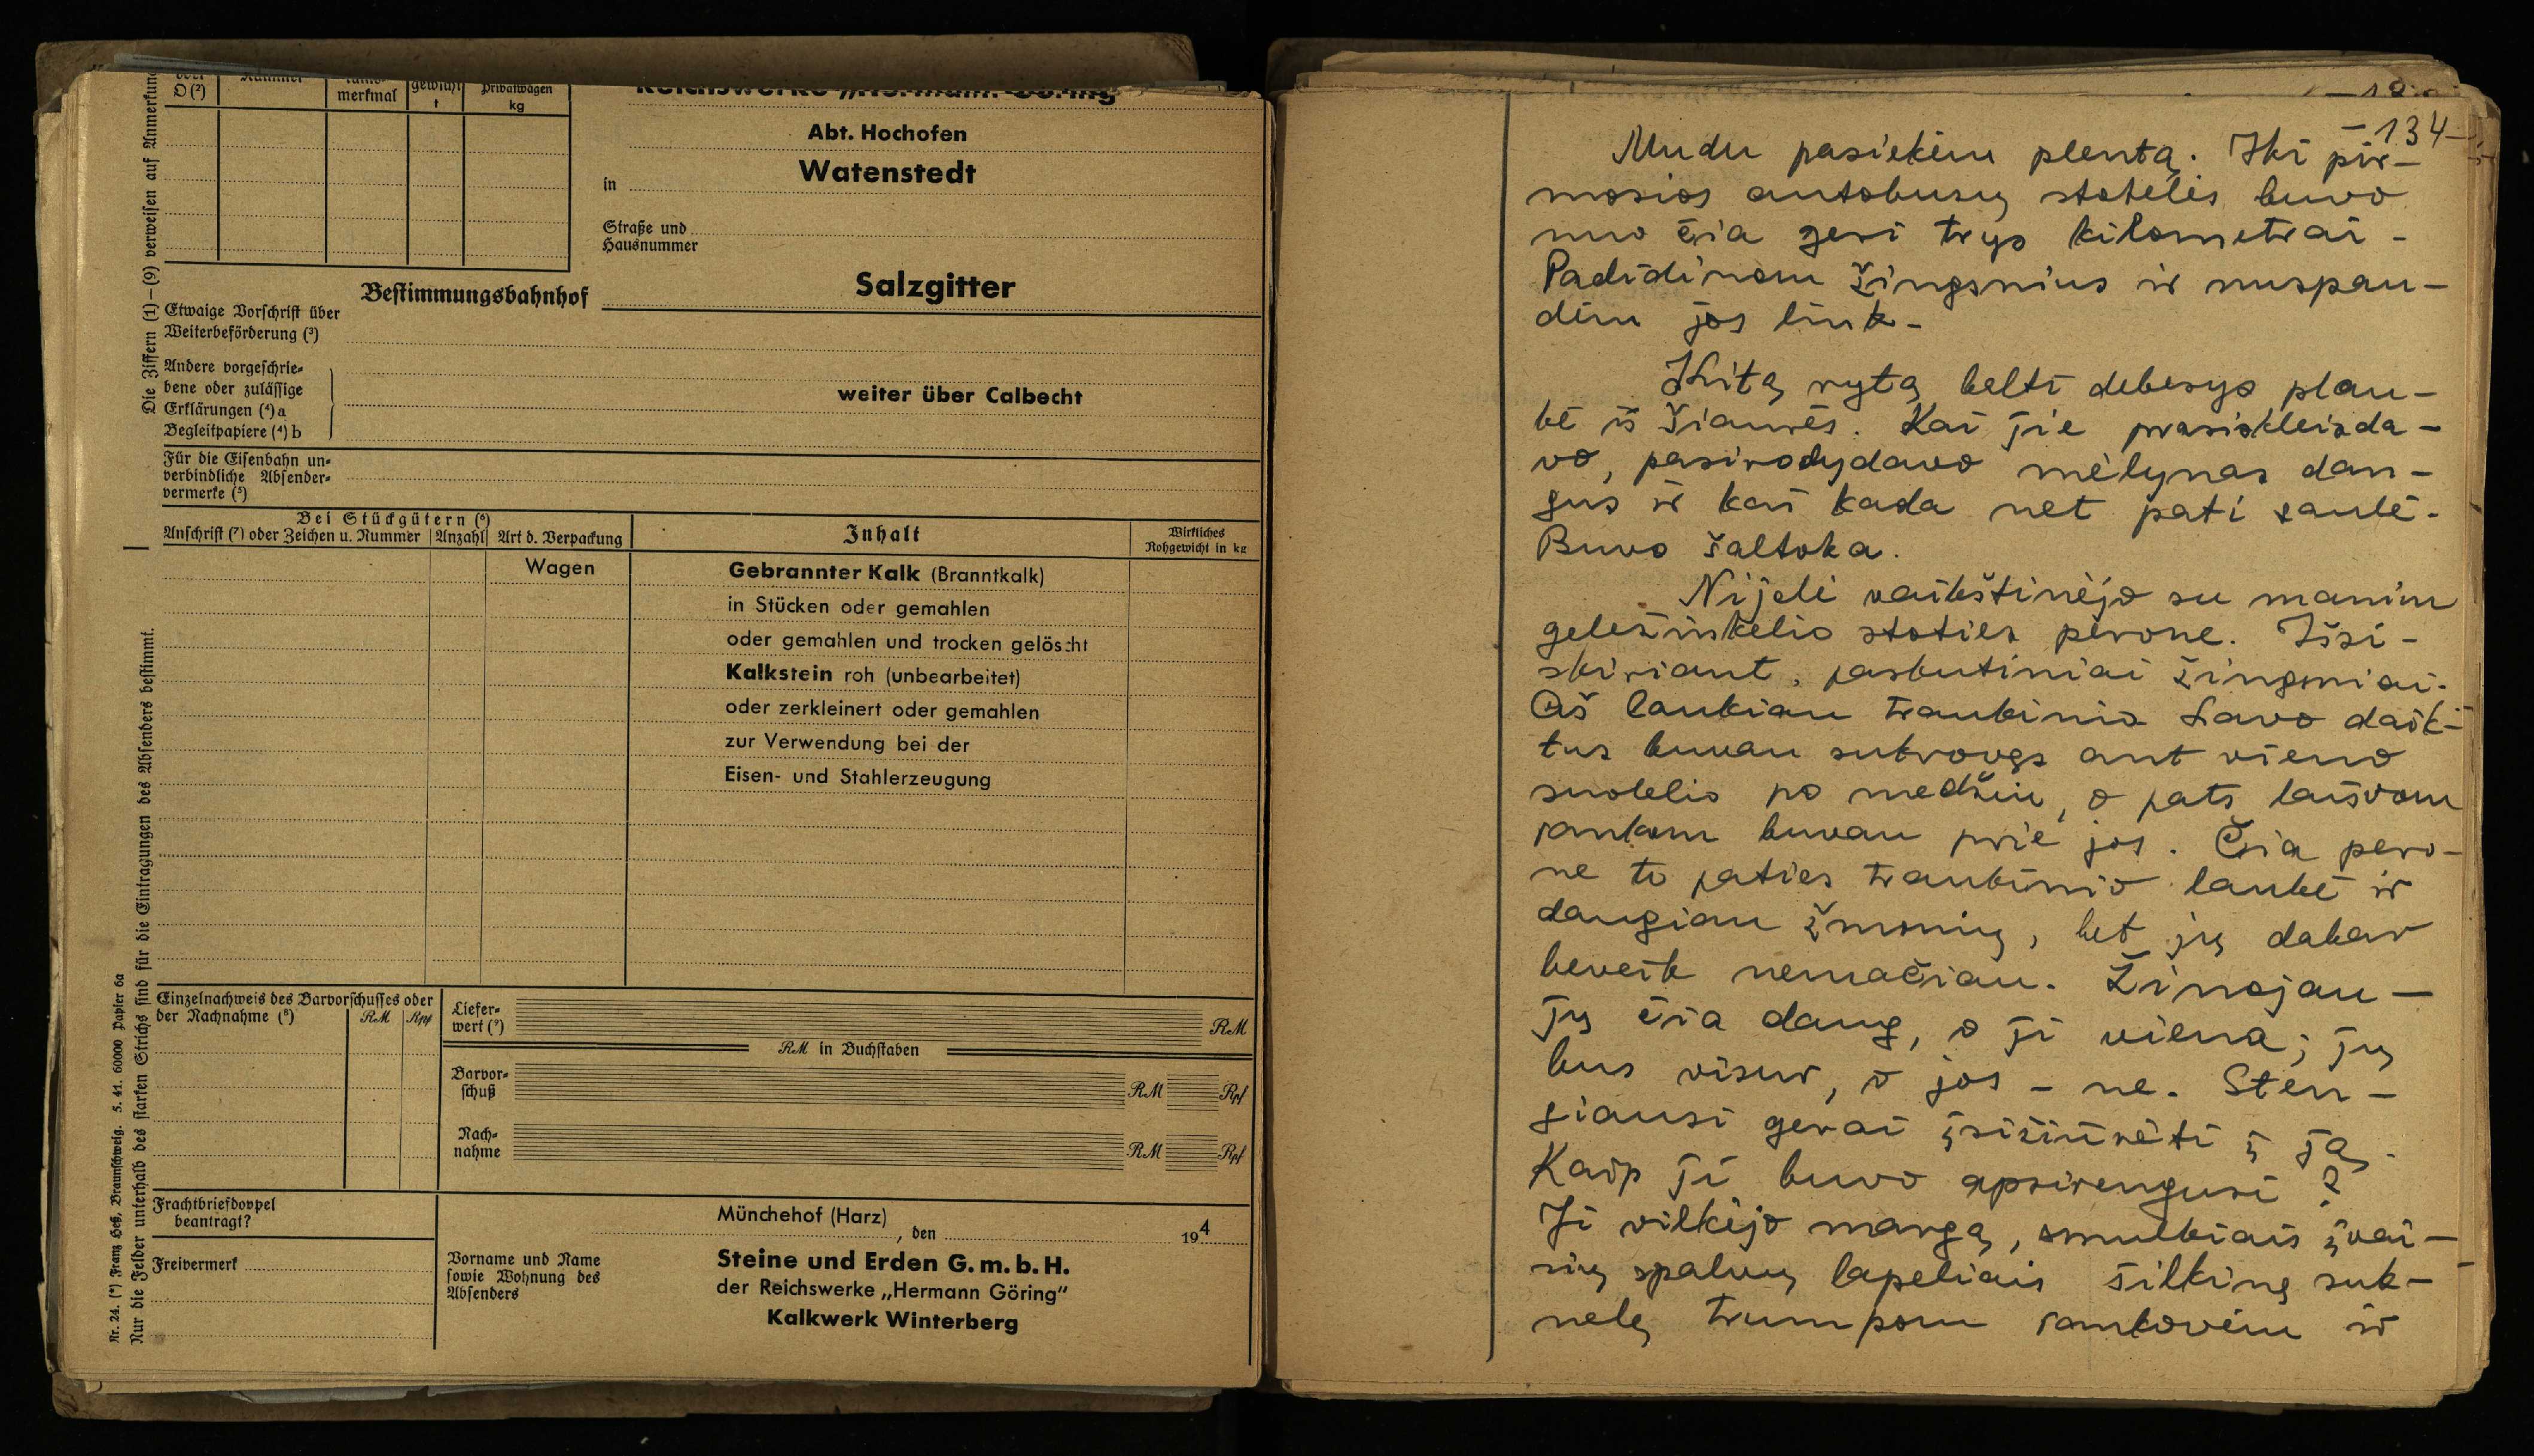 D (²)
merkmal
gewicht
t
Privatwagen
kg
Abt. Hochofen
in
Watenstedt
Straße und
Hausnummer
Bestimmungsbahnhof
Salzgitter
Etwaige Vorschrift über
Weiterbeförderung (³)
Andere vorgeschrie-
bene oder zulässige
Erklärungen (⁴) a
Begleitpapiere (⁴) b
weiter über Calbecht
Für die Eisenbahn un-
verbindliche Absender-
vermerke (⁵)
Bei Stückgütern (⁶)
Anschrift (⁷) oder Zeichen u. Nummer
Anzahl
Art d. Verpackung
Inhalt
Wirkliches
Rohgewicht in kg
Wagen
Gebrannter Kalk (Branntkalk)
in Stücken oder gemahlen
oder gemahlen und trocken gelöscht
Kalkstein roh (unbearbeitet)
oder zerkleinert oder gemahlen
zur Verwendung bei der
Eisen- und Stahlerzeugung
Einzelnachweis des Barvorschusses oder
der Nachnahme (⁸)
RM
Rpf
Liefer-
wert (⁹)
RM
RM in Buchstaben
Barvor-
schuß
RM
Rpf
Nach-
nahme
RM
Rpf
Frachtbriefdoppel
beantragt?
Freivermerk
Münchehof (Harz)
, den
194
Vorname und Name
sowie Wohnung des
Absenders
Steine und Erden G.m.b.H.
der Reichswerke „Hermann Göring"
Kalkwerk Winterberg
Die Ziffern (1)–(9) verweisen auf Anmerkung
Nur die Felder unterhalb des starken Strichs sind für die Eintragungen des Absenders bestimmt.
Nr. 24. (*) Franz Heß, Braunschweig. 5. 41. 60000 Papier 6a
–134–
Mudu pasiekėm plentą. Iki pir-
mosios autobusų stotelės buvo
nuo čia geri trys kilometrai.
Padidinom žingsnius ir nuspau-
dėm jos link.
Kitą rytą balti debesys plau-
kė iš šiaurės. Kai jie prasiskleisda-
vo, pasirodydavo mėlynas dan-
gus ir kai kada net pati saulė.
Buvo šaltoka.
Nijolė vaikštinėjo su manim
geležinkelio stoties perone. Išsi-
skiriant, paskutiniai žingsniai.
Aš laukiau traukinio. Savo daik-
tus buvau sukrovęs ant vieno
suolelio po medžiu, o pats laisvom
rankom buvau prie jos. Čia pero-
ne to paties traukinio laukė ir
daugiau žmonių, bet jų dabar
beveik nemačiau. Žinojau –
jų čia daug, o ji viena; jų
bus visur, o jos – ne. Sten-
giausi gerai įsižiūrėti į ją.
Kaip ji buvo apsirengusi?
Ji vilkėjo margą, smulkiais įvai-
rių spalvų lapeliais šilkinę suk-
nelę trumpom rankovėm ir